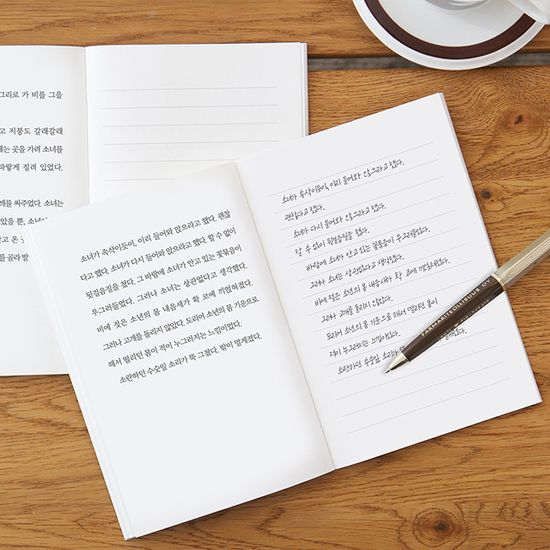 그리로 가 비를 그을
고 지붕도 갈래갈래
래는 곳을 가려 소녀를
파랗게 질려 있었다.
를 싸주었다. 소녀는
았을 뿐, 소녀
고 온
를 골라 발
소녀가 속삭이듯이, 이리 들어와 앉으라고 했다. 괜찮
다고 했다. 소녀가 다시 들어와 앉으라고 했다. 할 수 없이
뒷걸음질을 쳤다. 그 바람에 소녀가 안고 있는 꽃묶음이
우그러들었다. 그러나 소녀는 상관없다고 생각했다.
비에 젖은 소년의 몸 내음새가 확 코에 끼얹혀졌다.
그러나 고개를 돌리지 않았다. 도리어 소년의 몸 기운으로
해서 떨리던 몸이 적이 누그러지는 느낌이었다.
소란하던 수숫잎 소리가 뚝 그쳤다. 밖이 멀게졌다.
소녀가 속삭이듯이, 이리 들어와 앉으라고 했다.
괜찮다고 했다.
소녀가 다시 들어와 앉으라고 했다.
할 수 없이 뒷걸음질을 쳤다.
그 바람에 소녀가 안고 있는 꽃묶음이 우그러들었다.
그러나 소녀는 상관없다고 생각했다.
비에 젖은 소년의 몸 내음새가 확 코에 끼얹혀졌다.
그러나 고개를 돌리지 않았다.
도리어 소년의 몸 기운으로 해서 떨리던 몸이
적이 누그러지는 느낌이었다.
소란하던 수숫잎 소리